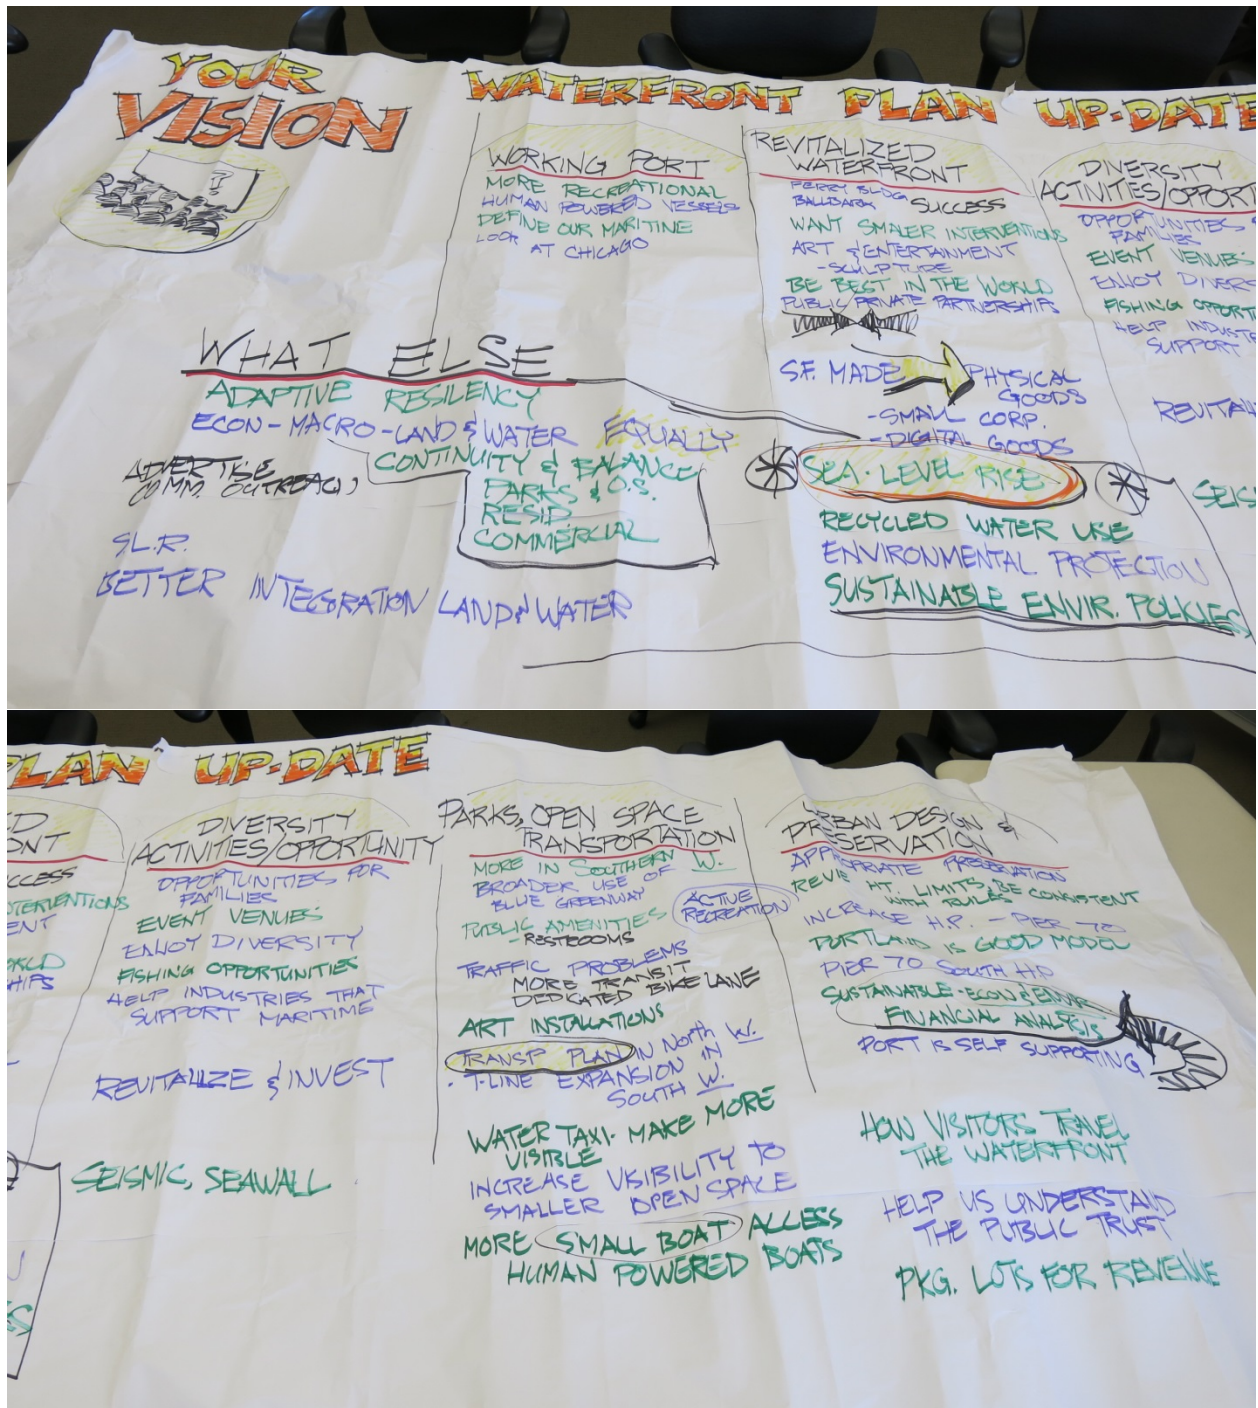 YOUR
VISION
WATERFRONT PLAN UP-DATE
?
WORKING PORT
MORE RECREATIONAL
HUMAN POWERED VESSELS
DEFINE OUR MARITIME
LOOK AT CHICAGO
REVITALIZED
WATERFRONT
FERRY BLDG
BALLPARK SUCCESS
WANT SMALER INTERVENTIONS
ART & ENTERTAINMENT
-SCULPTURE
BE BEST IN THE WORLD
PUBLIC PRIVATE PARTNERSHIPS
S.F. MADE PHYSICAL
GOODS
-SMALL CORP.
-DIGITAL GOODS
DIVERSITY
ACTIVITIES/OPPORT
OPPORTUNITIES
FAMILIES
EVENT VENUES
ENJOY DIVERS
FISHING OPPORT
HELP INDUSTR
SUPPORT
REVITAL
WHAT ELSE
ADAPTIVE RESILENCY
ECON-MACRO-LAND & WATER EQUALLY
CONTINUITY & BALANCE
PARKS & O.S.
RESID.
COMMERCIAL
ADVERTISE
COMM. OUTREACH
S.L.R.
BETTER INTEGRATION LAND & WATER
SEA-LEVEL RISE
RECYCLED WATER USE
ENVIRONMENTAL PROTECTION
SUSTAINABLE ENVIR. POLICIES
SEIS
PLAN UP-DATE
ED
ONT
CCESS
NTERVENTIONS
ENT
ORLD
HIPS
DIVERSITY
ACTIVITIES/OPPORTUNITY
OPPORTUNITIES FOR
FAMILIES
EVENT VENUES
ENJOY DIVERSITY
FISHING OPPORTUNITIES
HELP INDUSTRIES THAT
SUPPORT MARITIME
REVITALIZE & INVEST
SEISMIC, SEAWALL
ES
PARKS, OPEN SPACE
TRANSPORTATION
MORE IN SOUTHERN W.
BROADER USE OF
BLUE GREENWAY
ACTIVE
RECREATION
PUBLIC AMENITIES
-RESTROOMS
TRAFFIC PROBLEMS
MORE TRANSIT
DEDICATED BIKE LANE
ART INSTALLATIONS
TRANSP PLAN IN NORTH W.
• T-LINE EXPANSION IN
SOUTH W.
WATER TAXI- MAKE MORE
VISIBLE
INCREASE VISIBILITY TO
SMALLER OPEN SPACE
MORE SMALL BOAT ACCESS
HUMAN POWERED BOATS
URBAN DESIGN &
PRESERVATION
APPROPRIATE PRESERVATION
REVIE HT. LIMITS, BE CONSISTENT
WITH RULES
INCREASE H.P. - PIER 70
PORTLAND IS GOOD MODEL
PIER 70 SOUTH H.P
SUSTAINABLE-ECON & ENVIR
FINANCIAL ANALYSIS
PORT IS SELF SUPPORTING
HOW VISITORS TRAVEL
THE WATERFRONT
HELP US UNDERSTAND
THE PUBLIC TRUST
PKG. LOTS FOR REVENUE